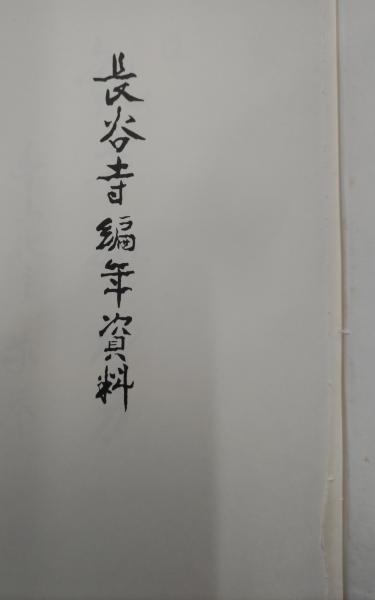 長谷寺編年資料